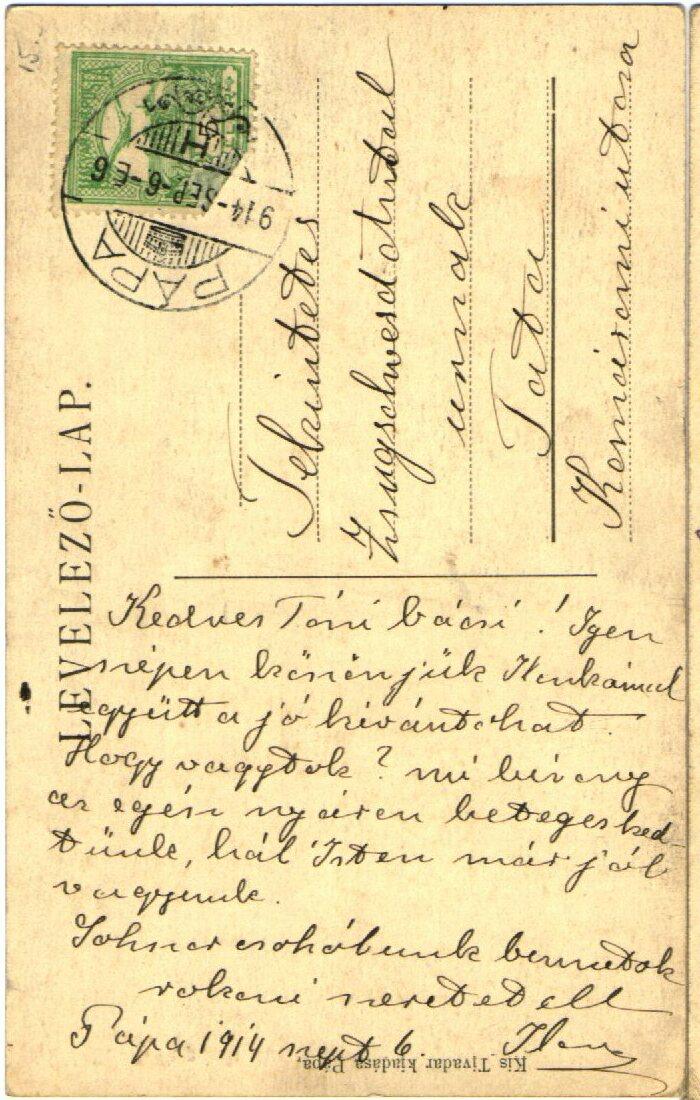 LEVELEZŐ-LAP.
PÁPA
914-SEP.-6.-E6
Tekintetes
urnak
Tata
Kedves Tóni bácsi! Igen
szépen köszönjük
együtt a jó kivántokat.
Hogy vagytok? mi bizony
az egész nyáron betegesked-
tünk, hál' Isten már jól
vagyunk.
Sokszor csókólunk bennetek
rokoni szeretettel
Pápa 1914 szept 6.
Kis Tivadar kiadása Pápa,